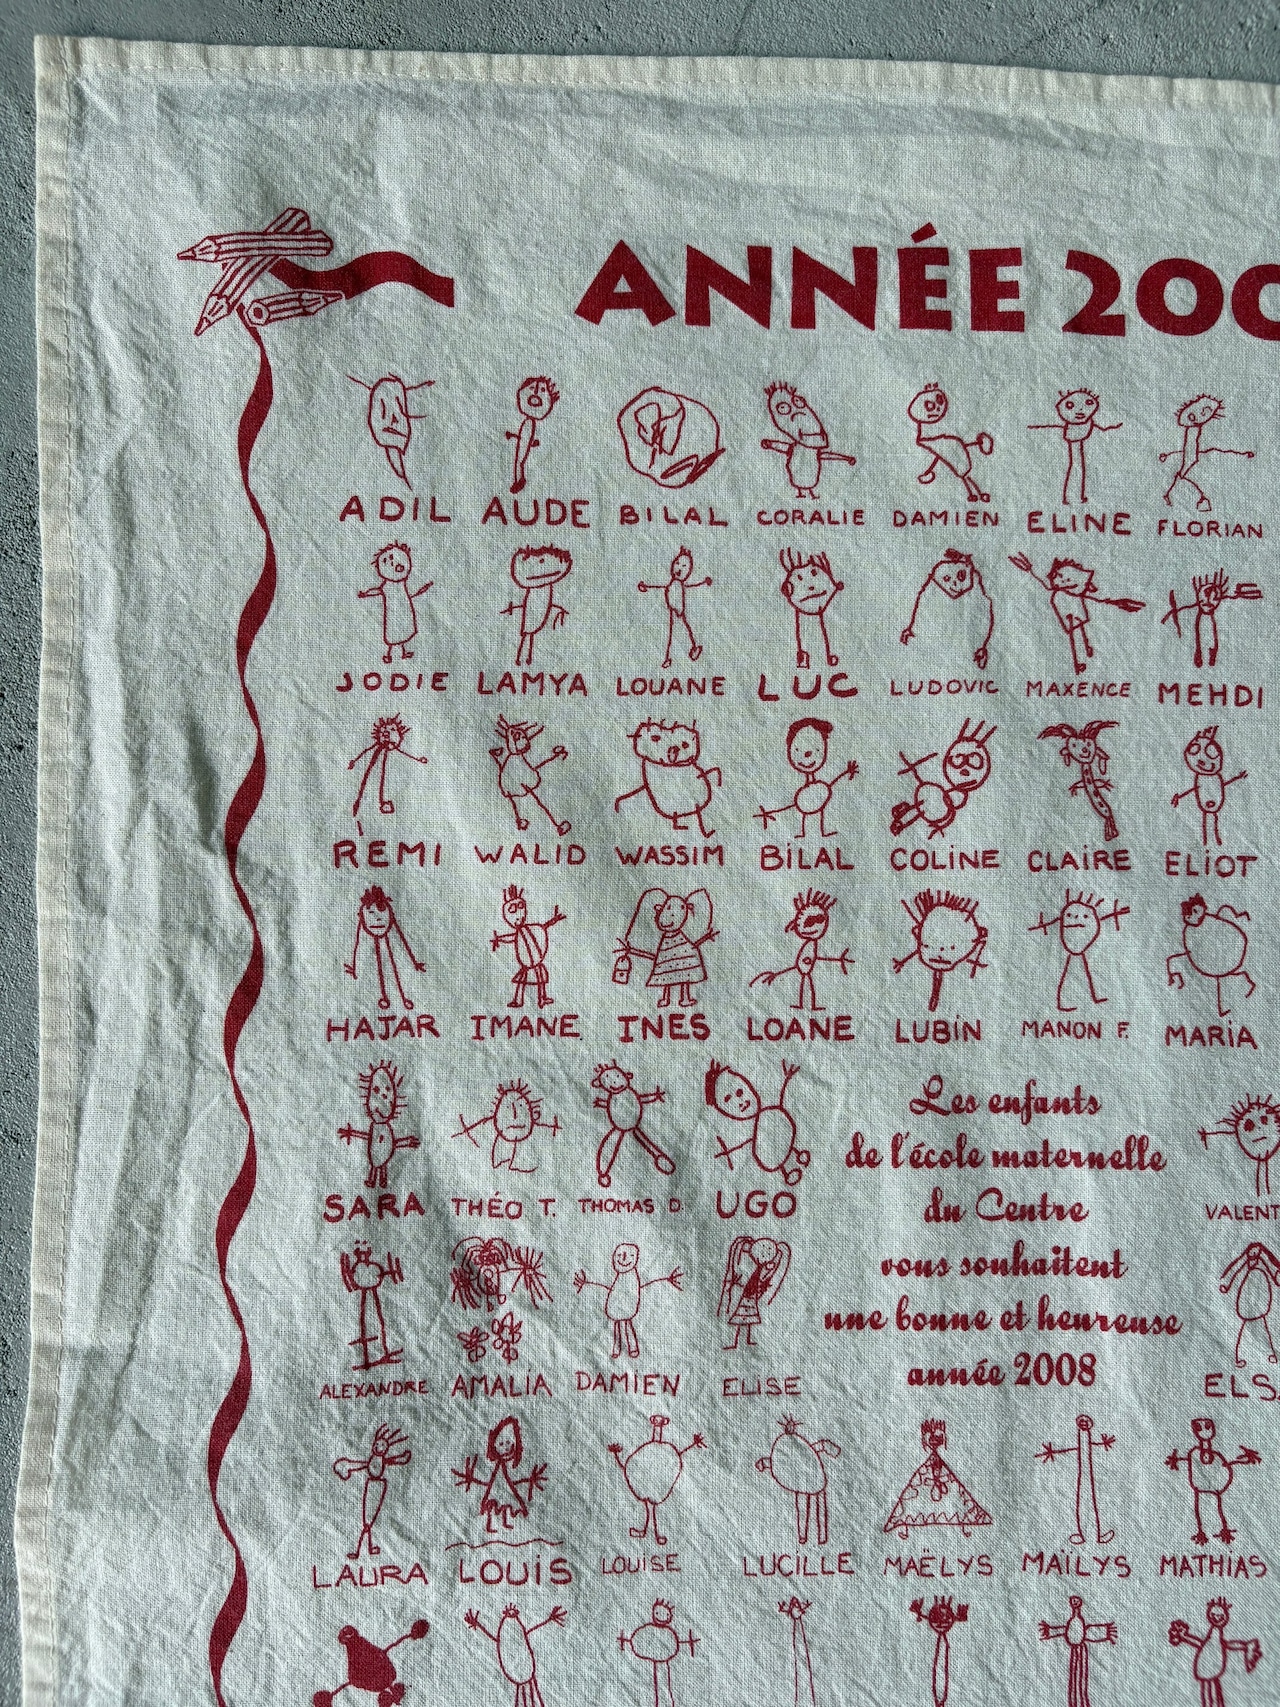 ANNÉE 200
ADIL AUDE BILAL CORALIE DAMIEN ELINE FLORIAN
JODIE LAMYA LOUANE LUC LUDOVIC MAXENCE MEHDI
RÉMI WALID WASSIM BILAL COLINE CLAIRE ELIOT
HAJAR IMANE INES LOANE LUBIN MANON F. MARIA
SARA THÉO T. THOMAS D. UGO
Les enfants
de l'école maternelle
du Centre
vous souhaitent
une bonne et heureuse
année 2008
VALENT
ALEXANDRE AMALIA DAMIEN ELISE
ELS
LAURA LOUIS LOUISE LUCILLE MAËLYS MAÏLYS MATHIAS